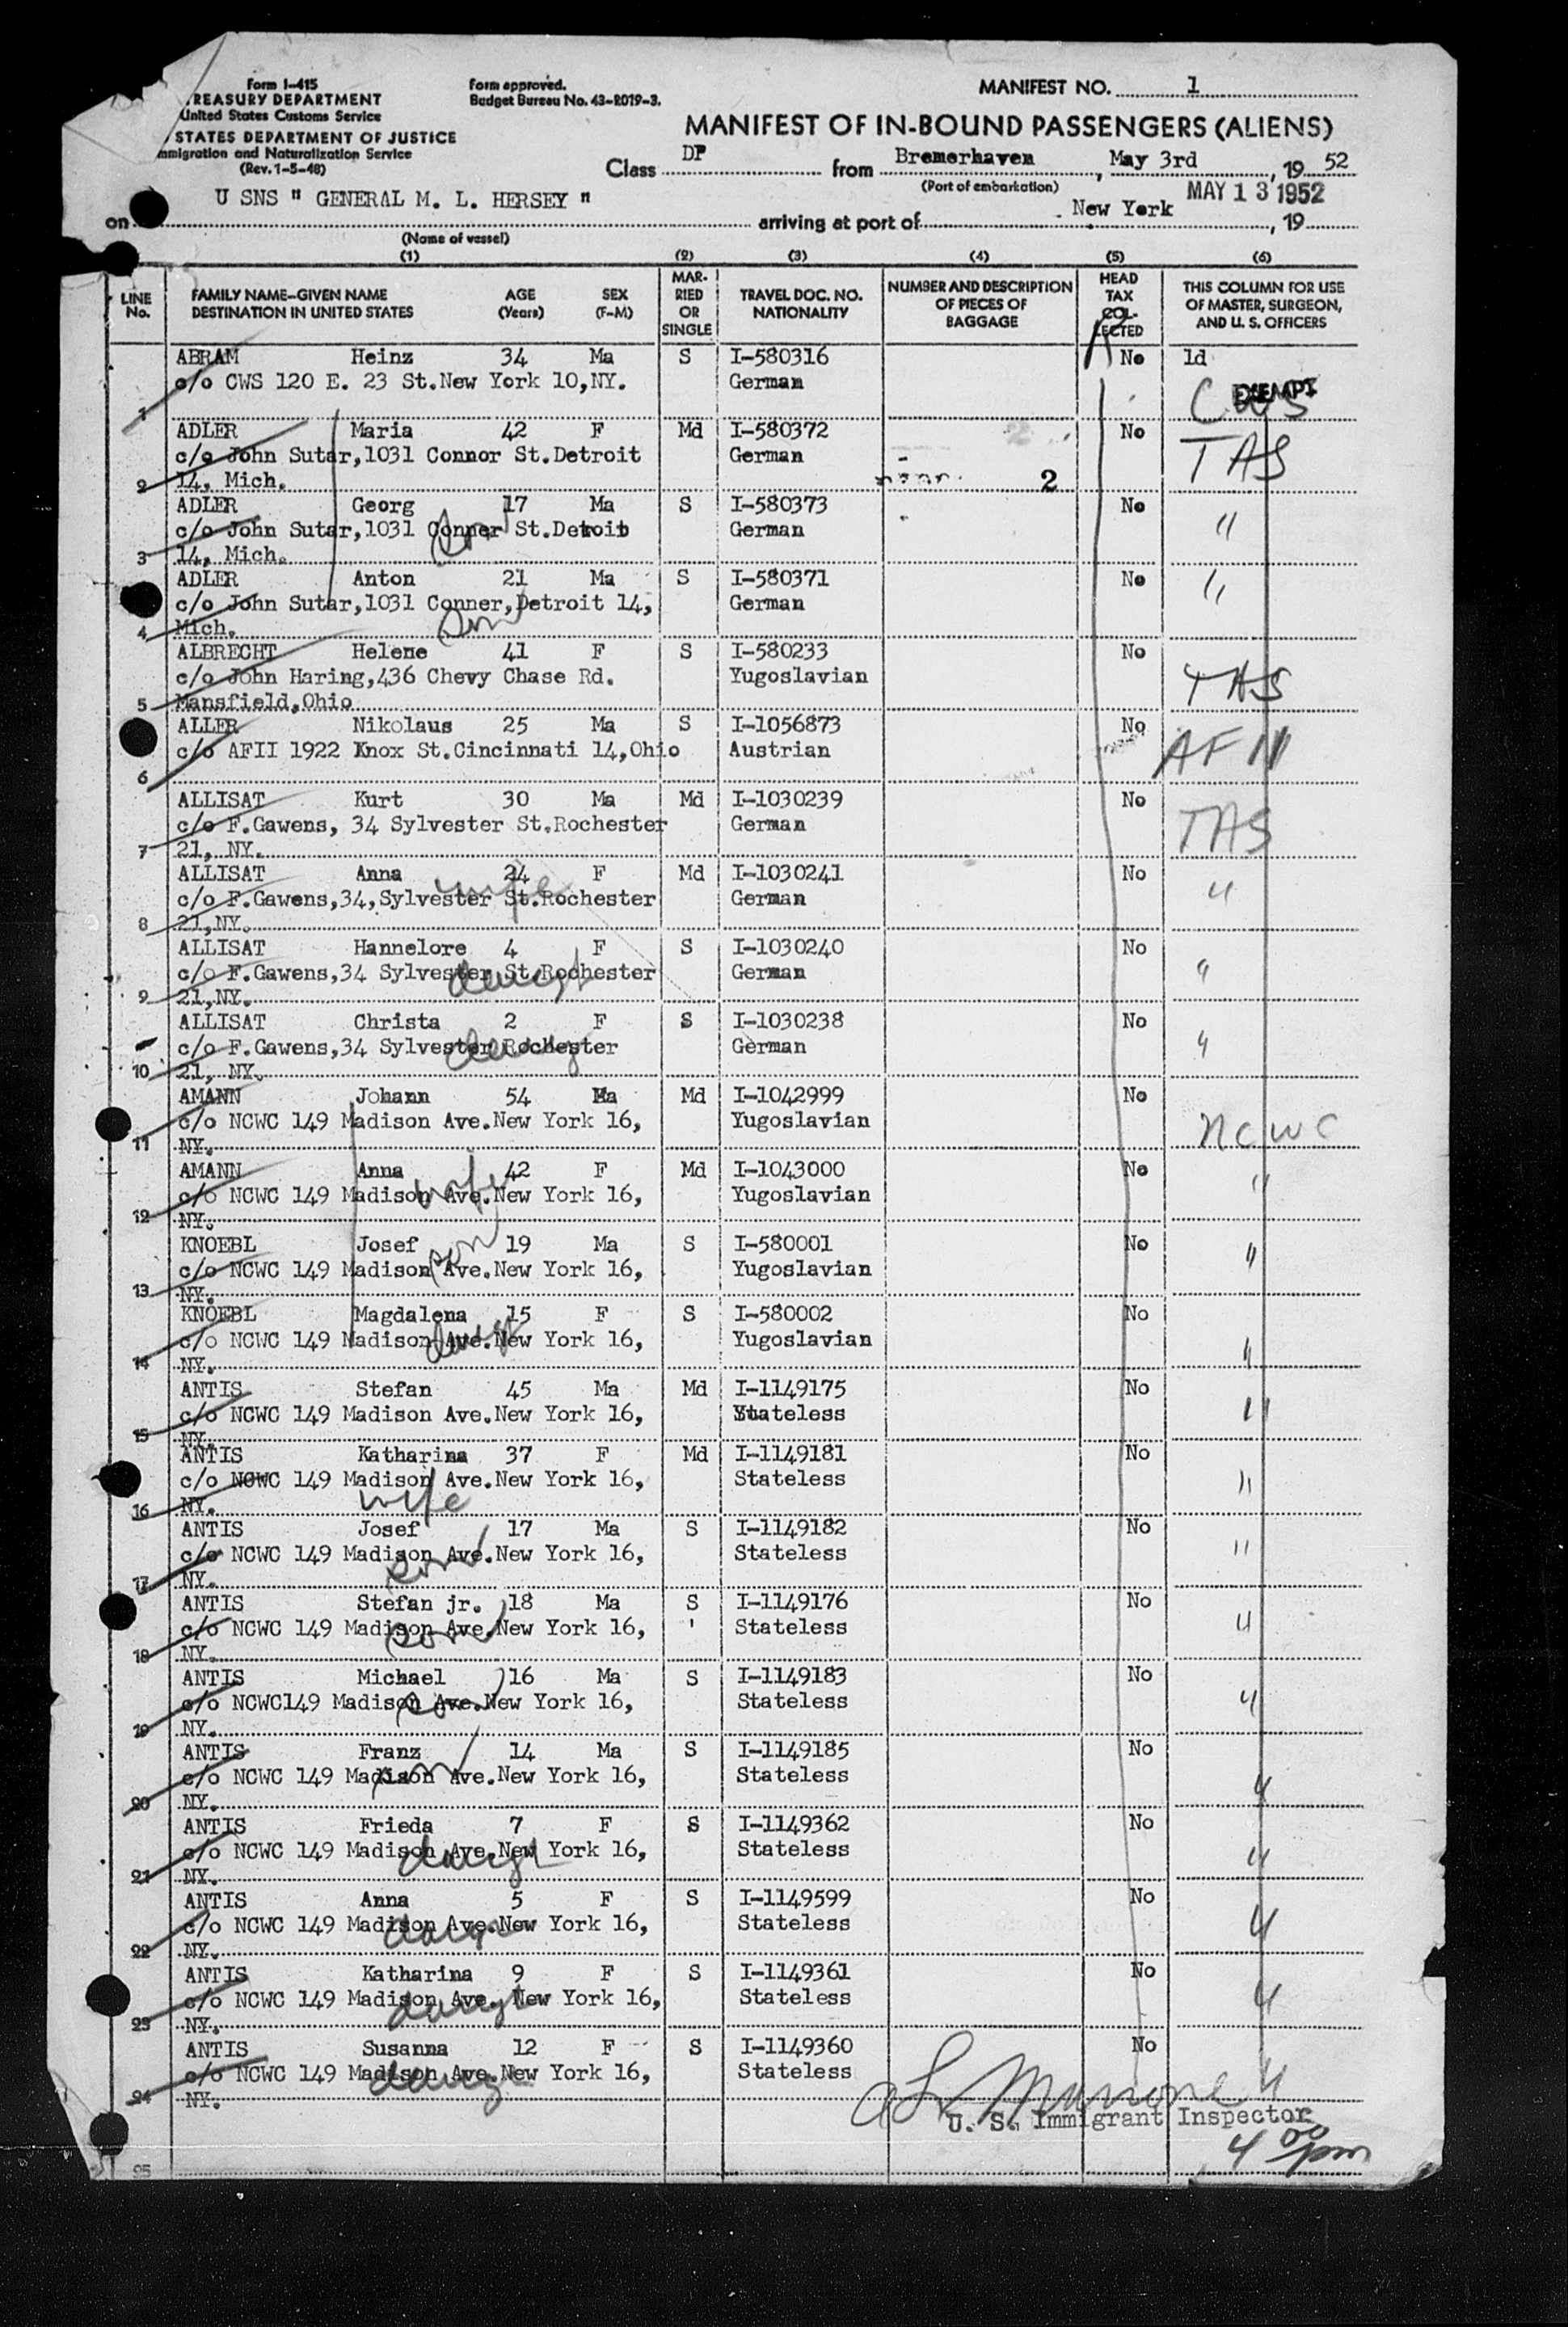 Form I-415
TREASURY DEPARTMENT
United States Customs Service
STATES DEPARTMENT OF JUSTICE
Immigration and Naturalization Service
(Rev. 1-5-48)
Form approved.
Budget Bureau No. 43-R019-3.
MANIFEST NO. 1
MANIFEST OF IN-BOUND PASSENGERS (ALIENS)
Class DP from Bremerhaven, May 3rd, 19 52
(Port of embarkation)
on U SNS " GENERAL M. L. HERSEY " arriving at port of New York MAY 13 1952, 19
(Name of vessel)
(1) (2) (3) (4) (5) (6)
LINE No. FAMILY NAME-GIVEN NAME DESTINATION IN UNITED STATES AGE (Years) SEX (F-M) MARRIED OR SINGLE TRAVEL DOC. NO. NATIONALITY NUMBER AND DESCRIPTION OF PIECES OF BAGGAGE HEAD TAX COLLECTED THIS COLUMN FOR USE OF MASTER, SURGEON, AND U. S. OFFICERS
ABRAM Heinz 34 Ma S I-580316 No 1d
c/o CWS 120 E. 23 St.New York 10,NY. German EXEMPT
1 CWS
ADLER Maria 42 F Md I-580372 No TAS
c/o John Sutar,1031 Connor St.Detroit German
2 14, Mich. 2
ADLER Georg 17 Ma S I-580373 No "
c/o John Sutar,1031 Conner St.Detroit German
son
3 14, Mich.
ADLER Anton 21 Ma S I-580371 No "
c/o John Sutar,1031 Conner,Detroit 14, German
son
4 Mich.
ALBRECHT Helene 41 F S I-580233 No
c/o John Haring,436 Chevy Chase Rd. Yugoslavian TAS
5 Mansfield,Ohio
ALLER Nikolaus 25 Ma S I-1056873 No
c/o AFII 1922 Knox St.Cincinnati 14,Ohio Austrian AFII
6
ALLISAT Kurt 30 Ma Md I-1030239 No
c/o F.Gawens, 34 Sylvester St.Rochester German TAS
7 21, NY.
ALLISAT Anna 24 F Md I-1030241 No "
wife
c/o F.Gawens,34,Sylvester St.Rochester German
8 21,NY.
ALLISAT Hannelore 4 F S I-1030240 No "
c/o F.Gawens,34 Sylvester St.Rochester German
daugt
9 21,NY.
ALLISAT Christa 2 F S I-1030238 No "
c/o F.Gawens,34 Sylvester Rochester German
daug
10 21, NY.
AMANN Johann 54 Ma Md I-1042999 No
c/o NCWC 149 Madison Ave.New York 16, Yugoslavian NCWC
11 NY.
AMANN Anna 42 F Md I-1043000 No "
wife
c/o NCWC 149 Madison Ave.New York 16, Yugoslavian
12 NY.
KNOEBL Josef 19 Ma S I-580001 No "
son
c/o NCWC 149 Madison Ave.New York 16, Yugoslavian
13 NY.
KNOEBL Magdalena 15 F S I-580002 No "
c/o NCWC 149 Madison Ave.New York 16, Yugoslavian
daugt
14 NY.
ANTIS Stefan 45 Ma Md I-1149175 No "
c/o NCWC 149 Madison Ave.New York 16, Stateless
15 NY.
ANTIS Katharina 37 F Md I-1149181 No "
c/o NCWC 149 Madison Ave.New York 16, Stateless
wife
16 NY.
ANTIS Josef 17 Ma S I-1149182 No "
c/o NCWC 149 Madison Ave.New York 16, Stateless
son
17 NY.
ANTIS Stefan jr. 18 Ma S I-1149176 No "
c/o NCWC 149 Madison Ave.New York 16, Stateless
son
18 NY.
ANTIS Michael 16 Ma S I-1149183 No "
c/o NCWC149 Madison Ave.New York 16, Stateless
son
19 NY.
ANTIS Franz 14 Ma S I-1149185 No "
c/o NCWC 149 Madison Ave.New York 16, Stateless
son
20 NY.
ANTIS Frieda 7 F S I-1149362 No "
c/o NCWC 149 Madison Ave.New York 16, Stateless
daugt
21 NY.
ANTIS Anna 5 F S I-1149599 No "
c/o NCWC 149 Madison Ave.New York 16, Stateless
daugt
22 NY.
ANTIS Katharina 9 F S I-1149361 No "
c/o NCWC 149 Madison Ave. New York 16, Stateless
daugt
23 NY.
ANTIS Susanna 12 F S I-1149360 No "
c/o NCWC 149 Madison Ave.New York 16, Stateless
daugt
24 NY.
U. S. Immigrant Inspector
4 00 pm
25